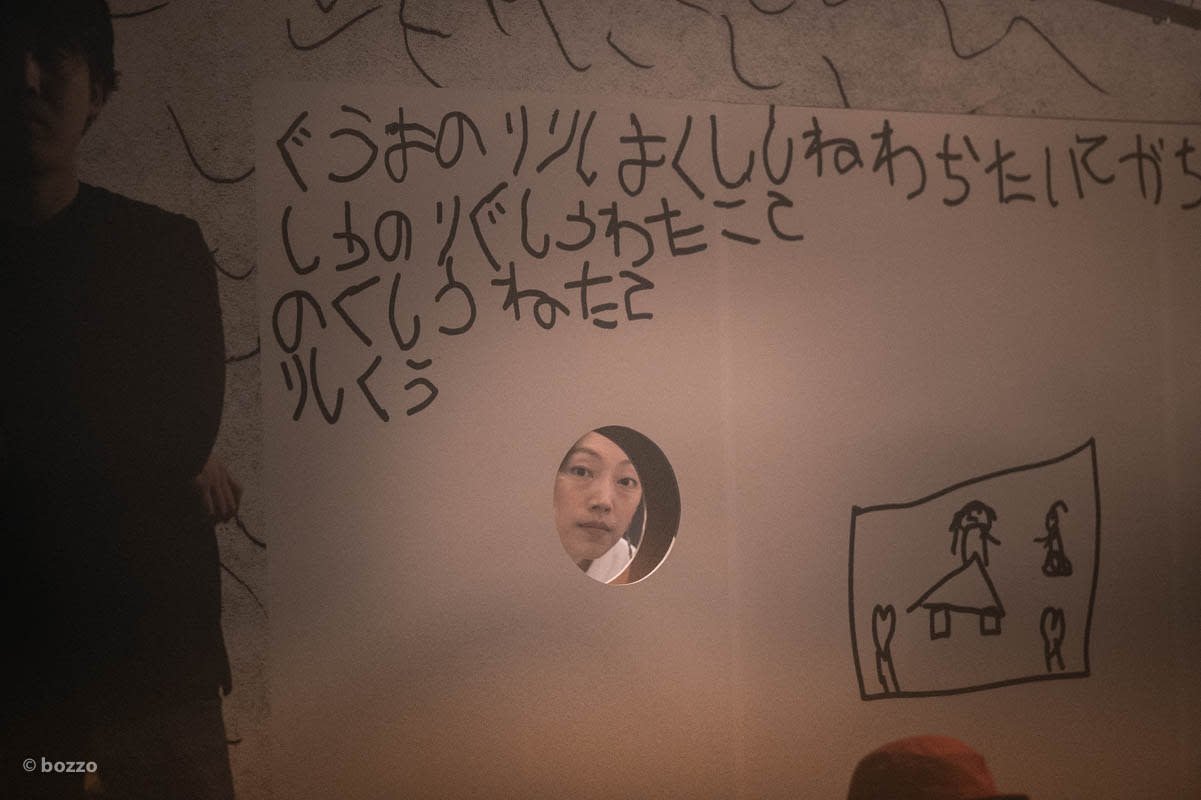 ぐうまのりりしまくししねわぢたいてがち
しものりぐしうわたこて
のくしうねたこ
りしくう
© bozzo